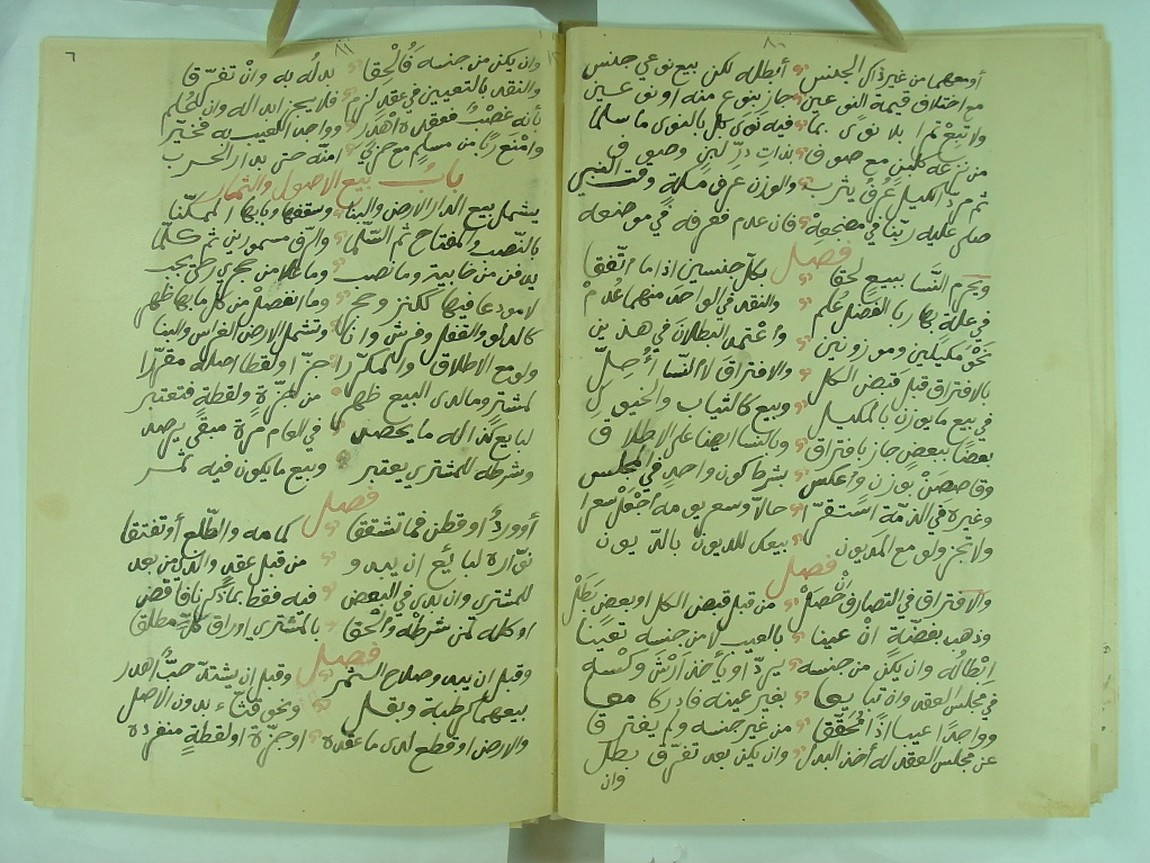 ٨٠
أو معهما من غير ذاك الجنس أبطله لكن بيع نوعي جنس
مع اختلاف قيمة النوعين جاز بنوع منه أو نوعين
ولا تبع تمرا بلا نوى بما فيه نوى بل بالنوى ما سلما
من نزعه كلبن مع صوف بذات در لبن وصوف
ثم مرد الكيل عرف يثرب والوزن عرف مكة وقت النبي
صلى عليه ربنا في مضجعه فإن عدم فعرفه في موضعه
فصل
ويحرم النسا ببيع لحقا بكل جنسين إذا ما اتفقا
في علة بها ربا الفضل علم والنقد في الواحد منهما عدم
نحو مكيلين وموزونين واعتمد البطلان في هذين
بالافتراق قبل قبض الكل والافتراق لا النسا أحل
في بيع ما يوزن بالمكيل وبيع كالثياب والخيول
بعضا ببعض جاز بافتراق وبالنسا أيضا على الإطلاق
وقاصصن بوزن واعكس بشرط كون واحد في المجلس
وغيره في الذمة استقرا حالا وسعر يومه اجعل سعرا
ولا تجز ولو مع المديون بيعك للديون بالديون
فصل
والافتراق في التصارف إن حصل من قبل قبض الكل أو بعض بطل
وذهب بفضة إن عينا بالعيب لا من جنسه تعينا
إبطاله وإن يكن من جنسه يرد أو يأخذ أرش وكسه
في مجلس العقد وإن تبايعا بغير عينه فأدركا معا
وواحد عيبا إذا محققا من غير جنسه ولم يفترقا
عن مجلس العقد له أخذ البدل وإن يكن بعد تفرق بطل
وإن
٨١
٦
وإن يكن من جنسه فألحقا بدله به وإن تفرقا
والنقد بالتعيين في عقد لزم فلا يجز إبداله وإن علم
بأنه غصب فعقده اهدر وواجد العيب به فخير
وامنع ربا من مسلم مع حربي امنه حتى بدار الحرب
باب بيع الأصول والثمار
يشمل بيع الدار الأرض والبنا وسقفها وبابها الممكنا
بالنصب والمفتاح ثم السلما والرف مسمورين ثم كلما
يدفن من خابية وما نصب وما علا من حجري رحى يجب
لا مودعا فيها ككنز وحجر وما انفصل من كل ما بها ظهر
كالدلو والقفل وفرش وانا وتشمل الأرض الغراس والبنا
ولو مع الإطلاق والمكررا جزا أو لقطا أصله مقررا
لمشتر وما لدى البيع ظهر من جزة ولقطة فتعتبر
لبايع كذا له ما يحصد في العام مرة مبقى يرصد
وشرطه للمشتري يعتبر وبيع ما يكون فيه ثمر
فصل
أو ورد أو قطن فما تشققا كمامه والطلع أو تفتقا
نواره لبائع إن يبدو من قبل عقد والذي من بعد
للمشتري وإن بدى في البعض فيه فقط بما ذكرنا فاقض
أو كله لمن شرطه والحقا بالمشتري أوراق كل مطلقا
فصل
وقبل أن يبدو صلاح الثمر وقبل أن يشتد حب اهدر
بيعهما كرطبة وبقل ونحو قثاء بدون الأصل
والأرض أو قطع لدى ما عقده أو جزة أو لقطة منفرده